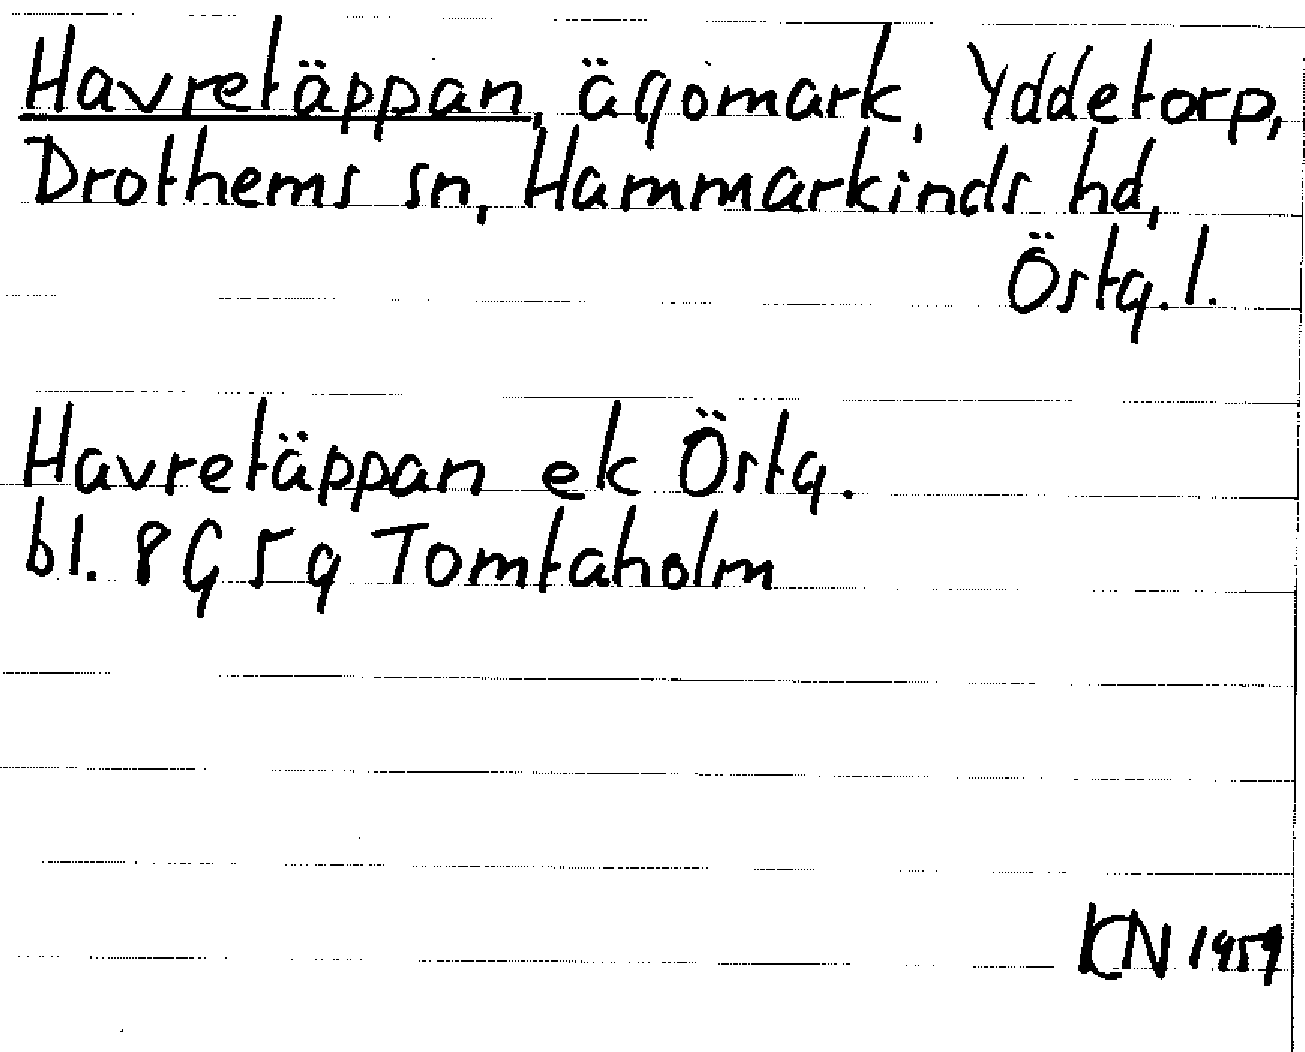 Havretäppan, ägomark, Yddetorp,
Drothems sn, Hammarkinds hd,
Östg. l.
Havretäppan ek Östg.
bl. 8G 5g Tomtaholm
KN 1959